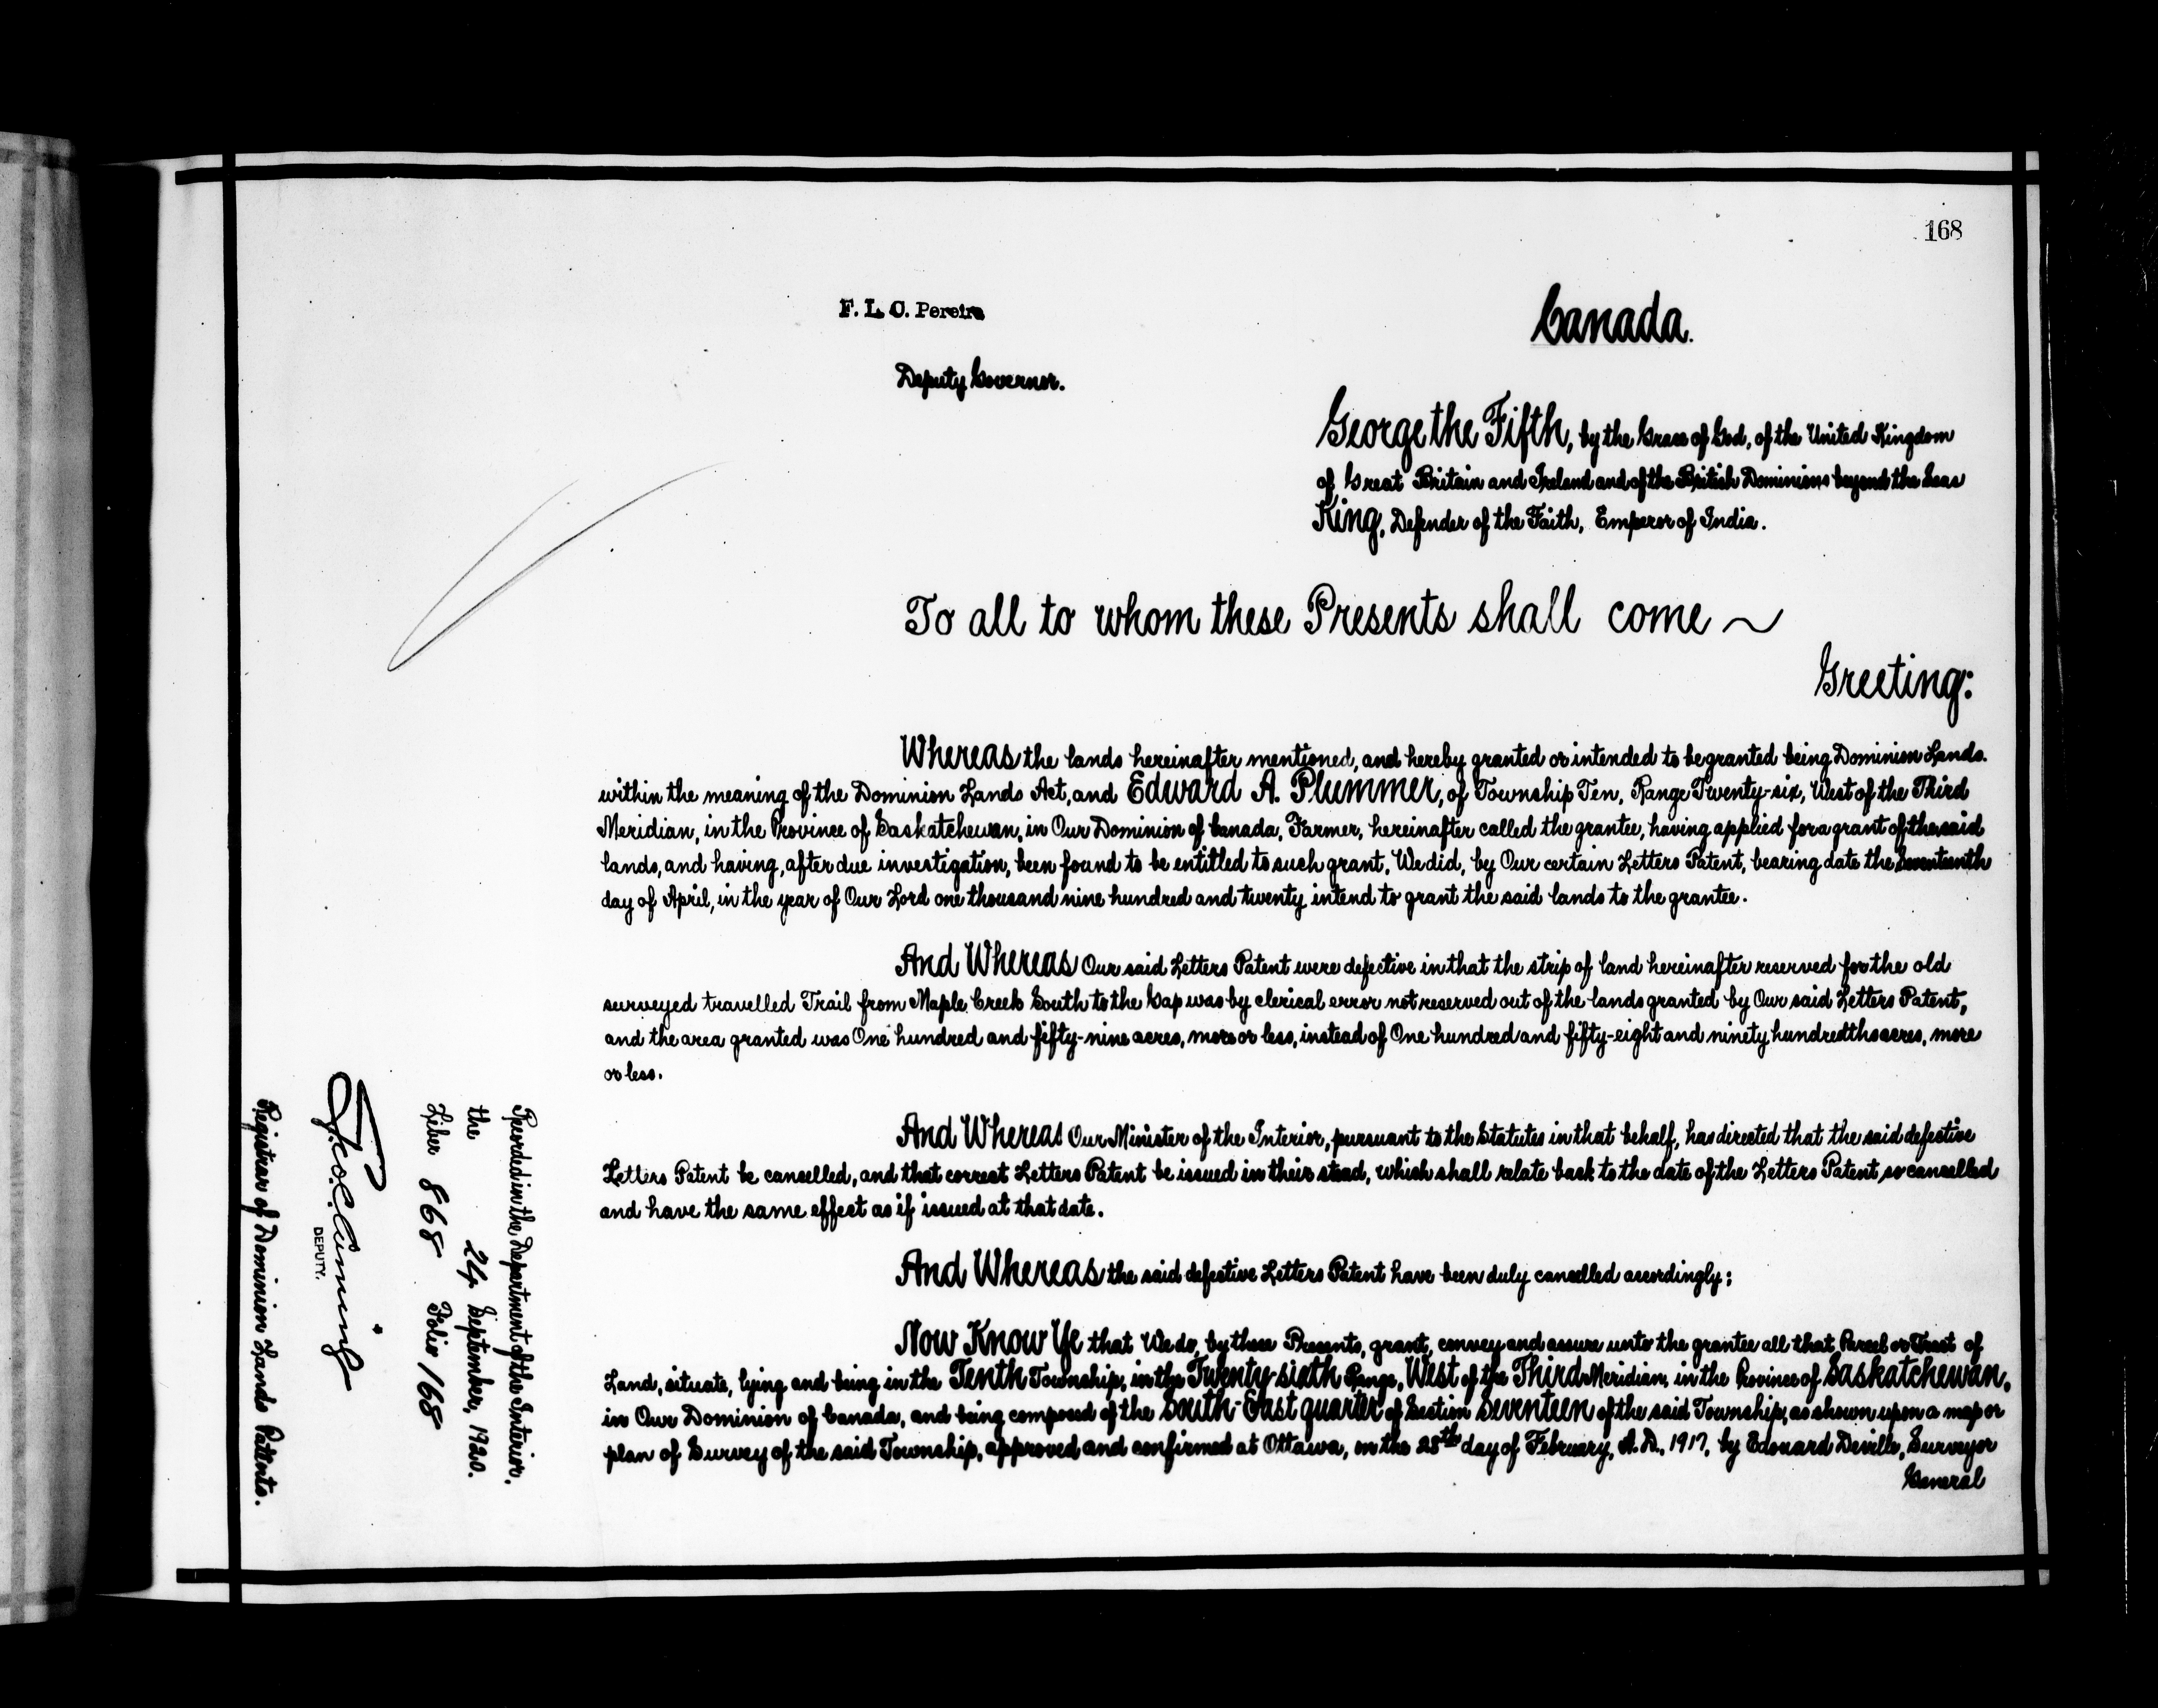 168
F. L. C. Pereira
Deputy Governor.
Canada.
George the Fifth, by the Grace of God, of the United Kingdom
of Great Britain and Ireland and of the British Dominions beyond the Seas
King, Defender of the Faith, Emperor of India.
To all to whom these Presents shall come ~
Greeting:
Whereas the lands hereinafter mentioned, and hereby granted or intended to be granted being Dominion Lands
within the meaning of the Dominion Lands Act, and Edward A. Plummer, of Township Ten, Range Twenty-six, West of the Third
Meridian, in the Province of Saskatchewan, in Our Dominion of Canada, Farmer, hereinafter called the grantee, having applied for a grant of the said
lands, and having, after due investigation, been found to be entitled to such grant, We did, by Our certain Letters Patent, bearing date the Seventeenth
day of April, in the year of Our Lord one thousand nine hundred and twenty intend to grant the said lands to the grantee.
And Whereas Our said Letters Patent were defective in that the strip of land hereinafter reserved for the old
surveyed travelled Trail from Maple Creek South to the Gap was by clerical error not reserved out of the lands granted by Our said Letters Patent,
and the area granted was One hundred and fifty-nine acres, more or less, instead of One hundred and fifty-eight and ninety hundredths acres, more
or less.
And Whereas Our Minister of the Interior, pursuant to the Statutes in that behalf, has directed that the said defective
Letters Patent be cancelled, and that correct Letters Patent be issued in their stead, which shall relate back to the date of the Letters Patent so cancelled
and have the same effect as if issued at that date.
And Whereas the said defective Letters Patent have been duly cancelled accordingly;
Now Know Ye that We do, by these Presents, grant, convey and assure unto the grantee all that Parcel or Tract of
Land, situate, lying and being in the Tenth Township, in the Twenty-sixth Range, West of the Third Meridian, in the Province of Saskatchewan,
in Our Dominion of Canada, and being composed of the South-East quarter of Section Seventeen of the said Township, as shown upon a map or
plan of Survey of the said Township, approved and confirmed at Ottawa, on the 28th day of February, A.D., 1917, by Edouard Deville, Surveyor
General
Recorded in the Department of the Interior,
the 24 September, 1920.
Liber 868 Folio 168
DEPUTY.
Registrar of Dominion Lands Patents.